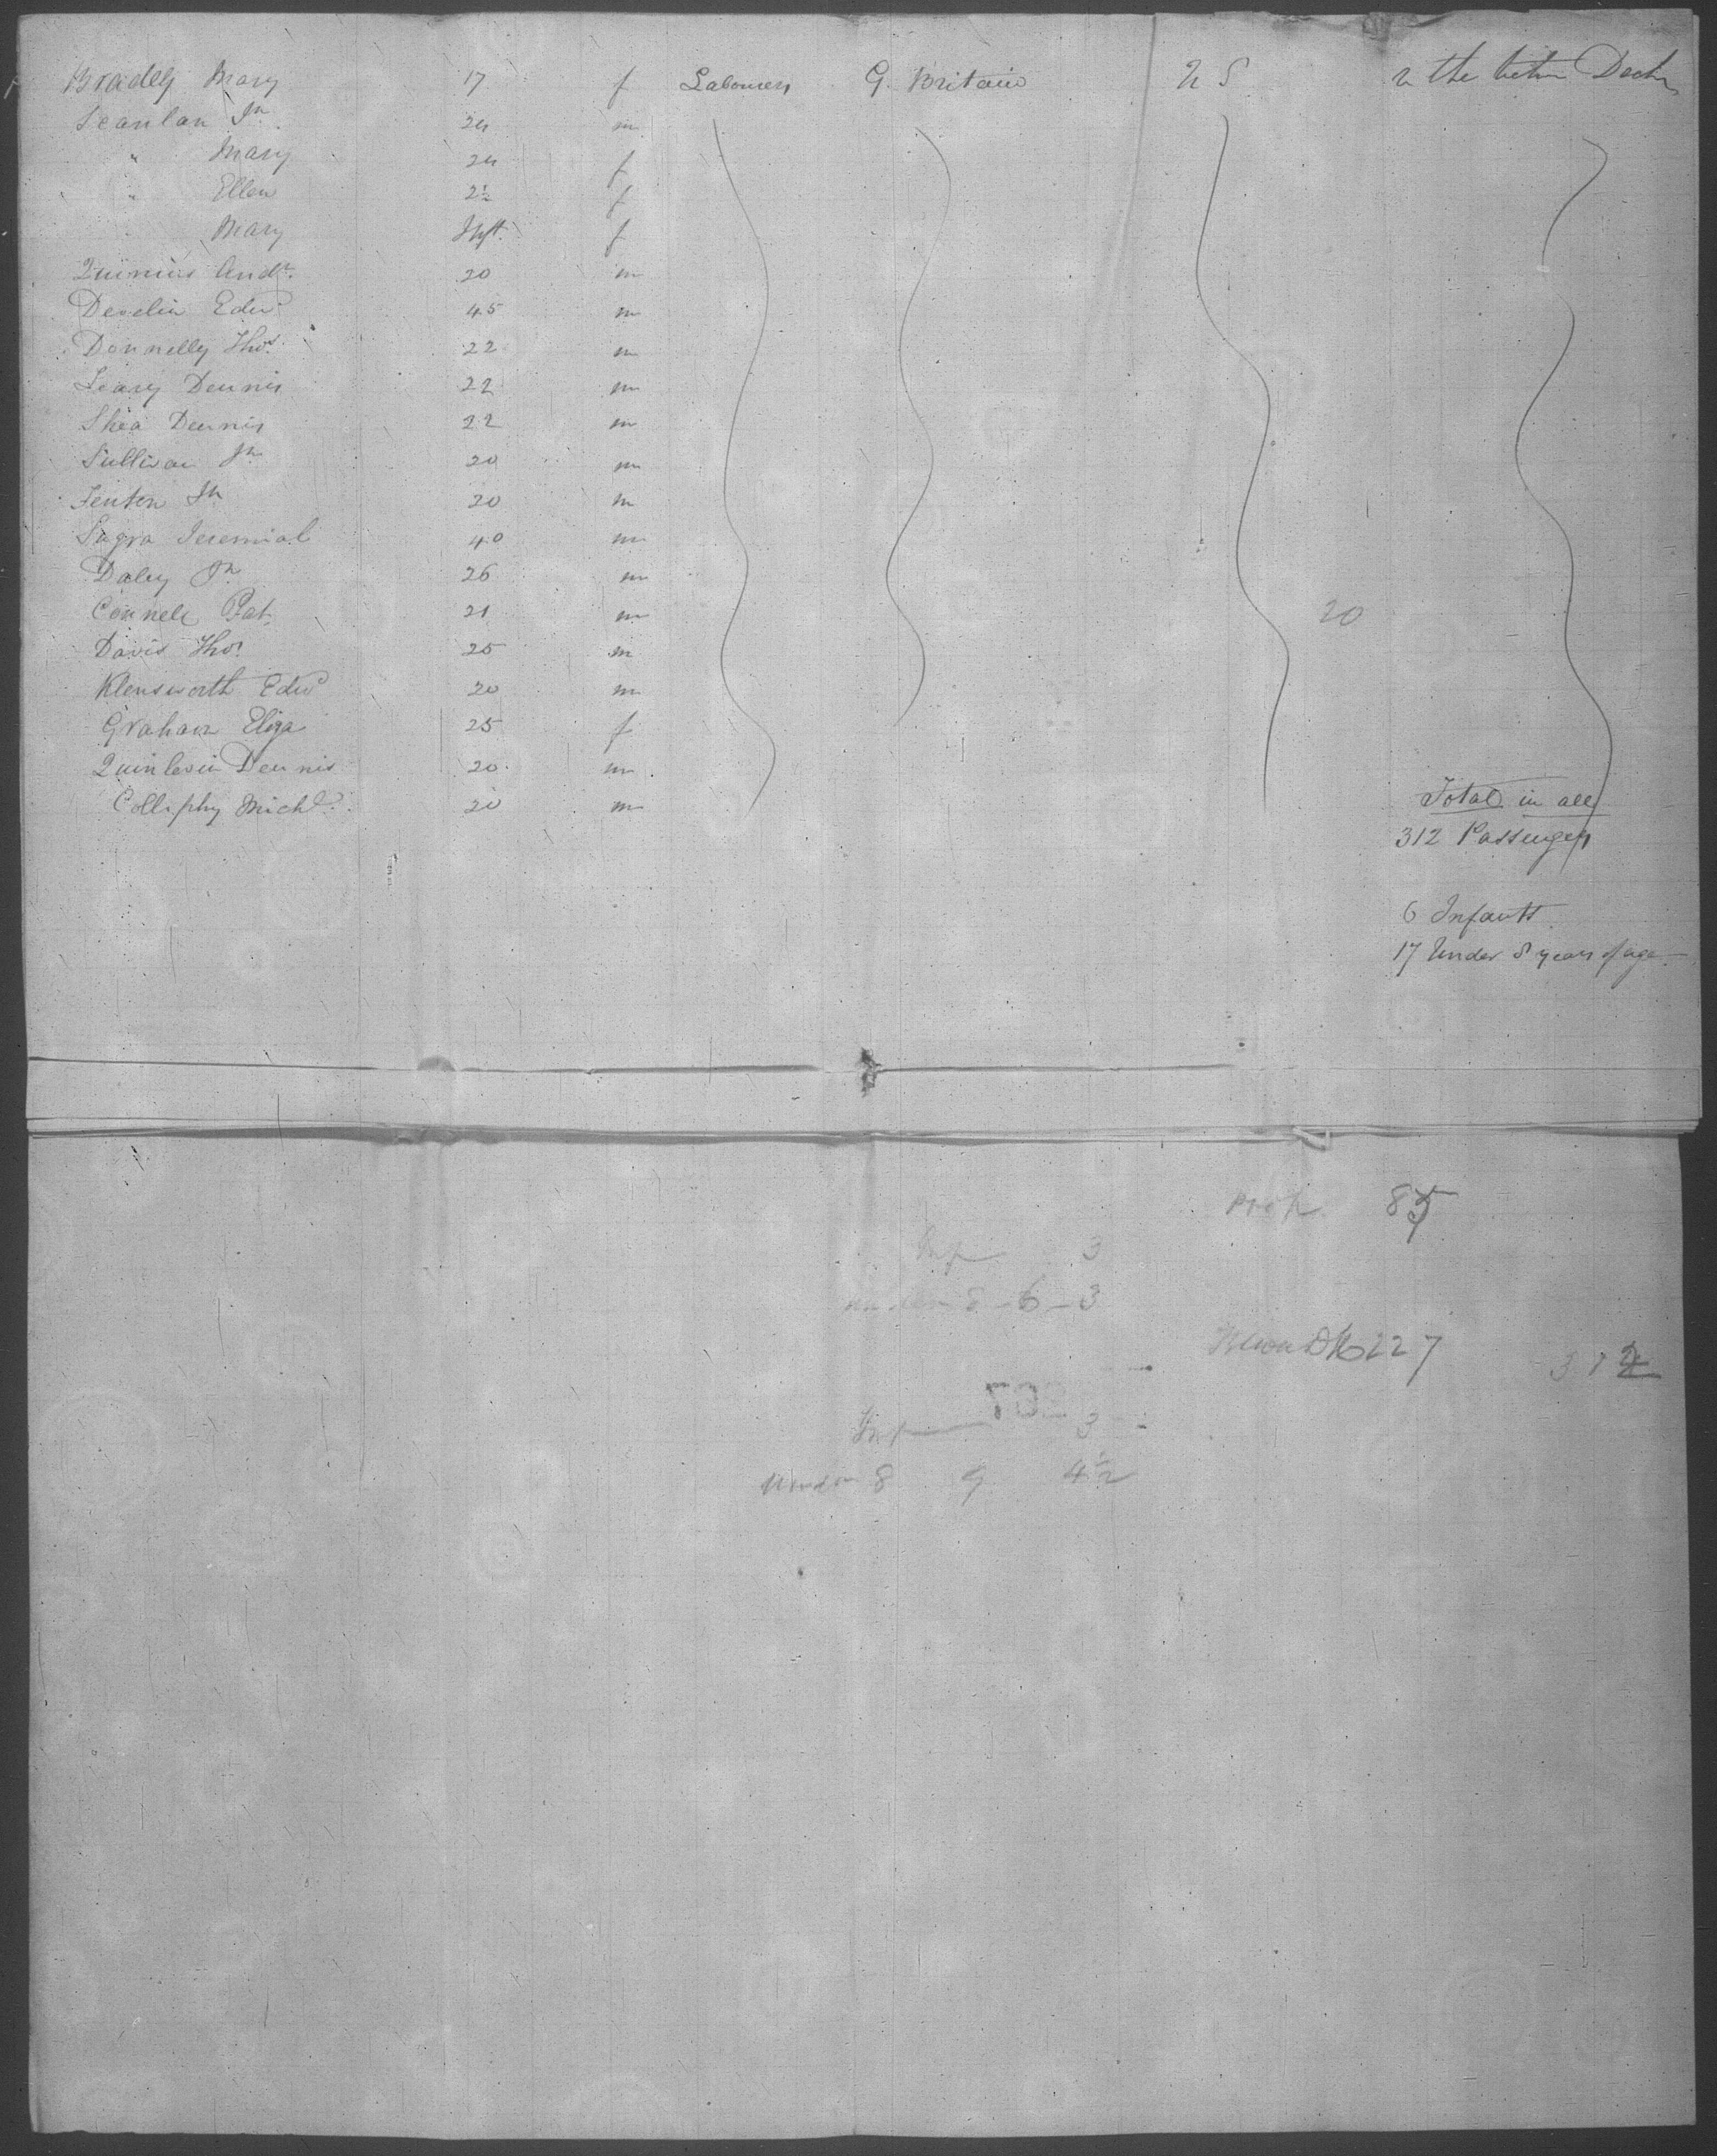 Bradley Mary 17 f Labourers G. Britain U S In the betwn Decks
Scanlan Jn 24 m
" Mary 24 f
" Ellen 2½ f
Mary Inft. f
Andw. 20 m
Devlin Edwd 45 m
Donnelly Thos. 22 m
Leary Dennis 22 m
Shea Dennis 22 m
Sullivan Jn 20 m
Fenton Jn 20 m
Sagra Jeremiah 40 m
Daley Jn 26 m
Connele Pat. 21 m 20
Davis Thos. 25 m
Klensworth Edwd 20 m
Graham Eliza 25 f
Quinlevin Dennis 20 m
Collophy Michl. 20 m
Total in all
312 Passengers
6 Infants
17 Under 8 years of age
Poop 85
Inf 3
under 8 - 6 - 3
227
312
Inf 3
Under 8 9 4½